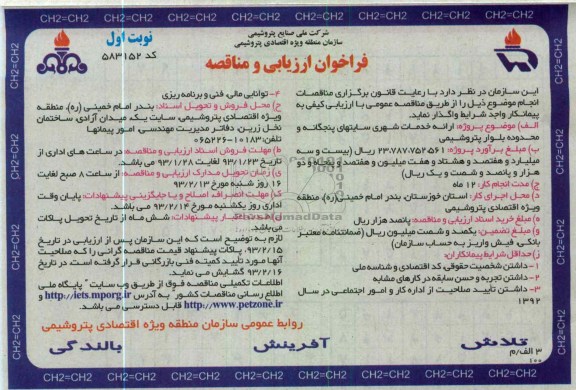 CH2=CH2 CH2=CH2 CH2=CH2 CH2=CH2 CH2=CH2 CH2=CH2 CH2=CH2
شرکت ملی صنایع پتروشیمی
سازمان منطقه ویژه اقتصادی پتروشیمی
نوبت اول
کد ۵۸۳۱۵۲
فراخوان ارزیابی و مناقصه
این سازمان در نظر دارد با رعایت قانون برگزاری مناقصات
انجام موضوع ذیل را از طریق مناقصه عمومی با ارزیابی کیفی به
پیمانکار واجد شرایط واگذار نماید.
الف) موضوع پروژه: ارائه خدمات شهری سایتهای پنجگانه و
محدوده بلوار پتروشیمی
ب) مبلغ برآورد پروژه: ۲۳،۷۸۷،۷۵۲،۵۶۱ ریال (بیست و سه
میلیارد و هفتصد و هشتاد و هفت میلیون و هفتصد و پنجاه و دو
هزار و پانصد و شصت و یک ریال)
ج) مدت انجام کار: ۱۲ ماه
د) محل اجرای کار: استان خوزستان، بندر امام خمینی(ره)، منطقه
ویژه اقتصادی پتروشیمی
ه) مبلغ خرید اسناد ارزیابی و مناقصه: پانصد هزار ریال
و) مبلغ تضمین: یکصد و شصت میلیون ریال (ضمانتنامه معتبر
بانکی، فیش واریز به حساب سازمان)
ز) حداقل شرایط پیمانکاران:
۱- داشتن شخصیت حقوقی، کد اقتصادی و شناسه ملی
۲- داشتن تجربه و حسن سابقه در کارهای مشابه
۳- داشتن تأیید صلاحیت از اداره کار و امور اجتماعی در سال
۱۳۹۲
۴- توانایی مالی، فنی و برنامه ریزی
ح) محل فروش و تحویل اسناد: بندر امام خمینی (ره)، منطقه
ویژه اقتصادی پتروشیمی، سایت یک، میدان آزادی، ساختمان
نخل زرین، دفاتر مدیریت مهندسی، امور پیمانها
تلفن: ۱۰۸۳-۰۶۵۲۲۶
ط) مهلت فروش اسناد ارزیابی و مناقصه: در ساعت های اداری از
تاریخ ۹۳/۱/۲۳ لغایت ۹۳/۱/۲۸ می باشد.
ی) زمان تحویل مدارک ارزیابی و مناقصه: از ساعت ۸ صبح لغایت
۱۶ روز شنبه مورخ ۹۳/۲/۱۳
ک) مهلت انصراف، اصلاح و یا جایگزینی پیشنهادات: پایان وقت
اداری روز یکشنبه مورخ ۹۳/۲/۱۴ می باشد.
اعتبار پیشنهادات: شش ماه از تاریخ تحویل پاکات
می باشد.
لازم به توضیح است که این سازمان پس از ارزیابی در تاریخ
۹۳/۲/۱۵، پاکات پیشنهاد قیمت مناقصه گرانی را که صلاحیت
آنها مورد تأیید کمیته فنی بازرگانی قرار گرفته است، در تاریخ
۹۳/۲/۱۶ گشایش می نماید.
اطلاعات تکمیلی مناقصه فوق از طریق وب سایت " پایگاه ملی
اطلاع رسانی مناقصات کشور " به آدرس http://iets.mporg.ir و
http://www.petzone.ir قابل دسترسی می باشد.
روابط عمومی سازمان منطقه ویژه اقتصادی پتروشیمی
تلاش آفرینش بالندگی
۳ الف/م
۱۰۰
CH2=CH2 CH2=CH2 CH2=CH2 CH2=CH2 CH2=CH2 CH2=CH2 CH2=CH2